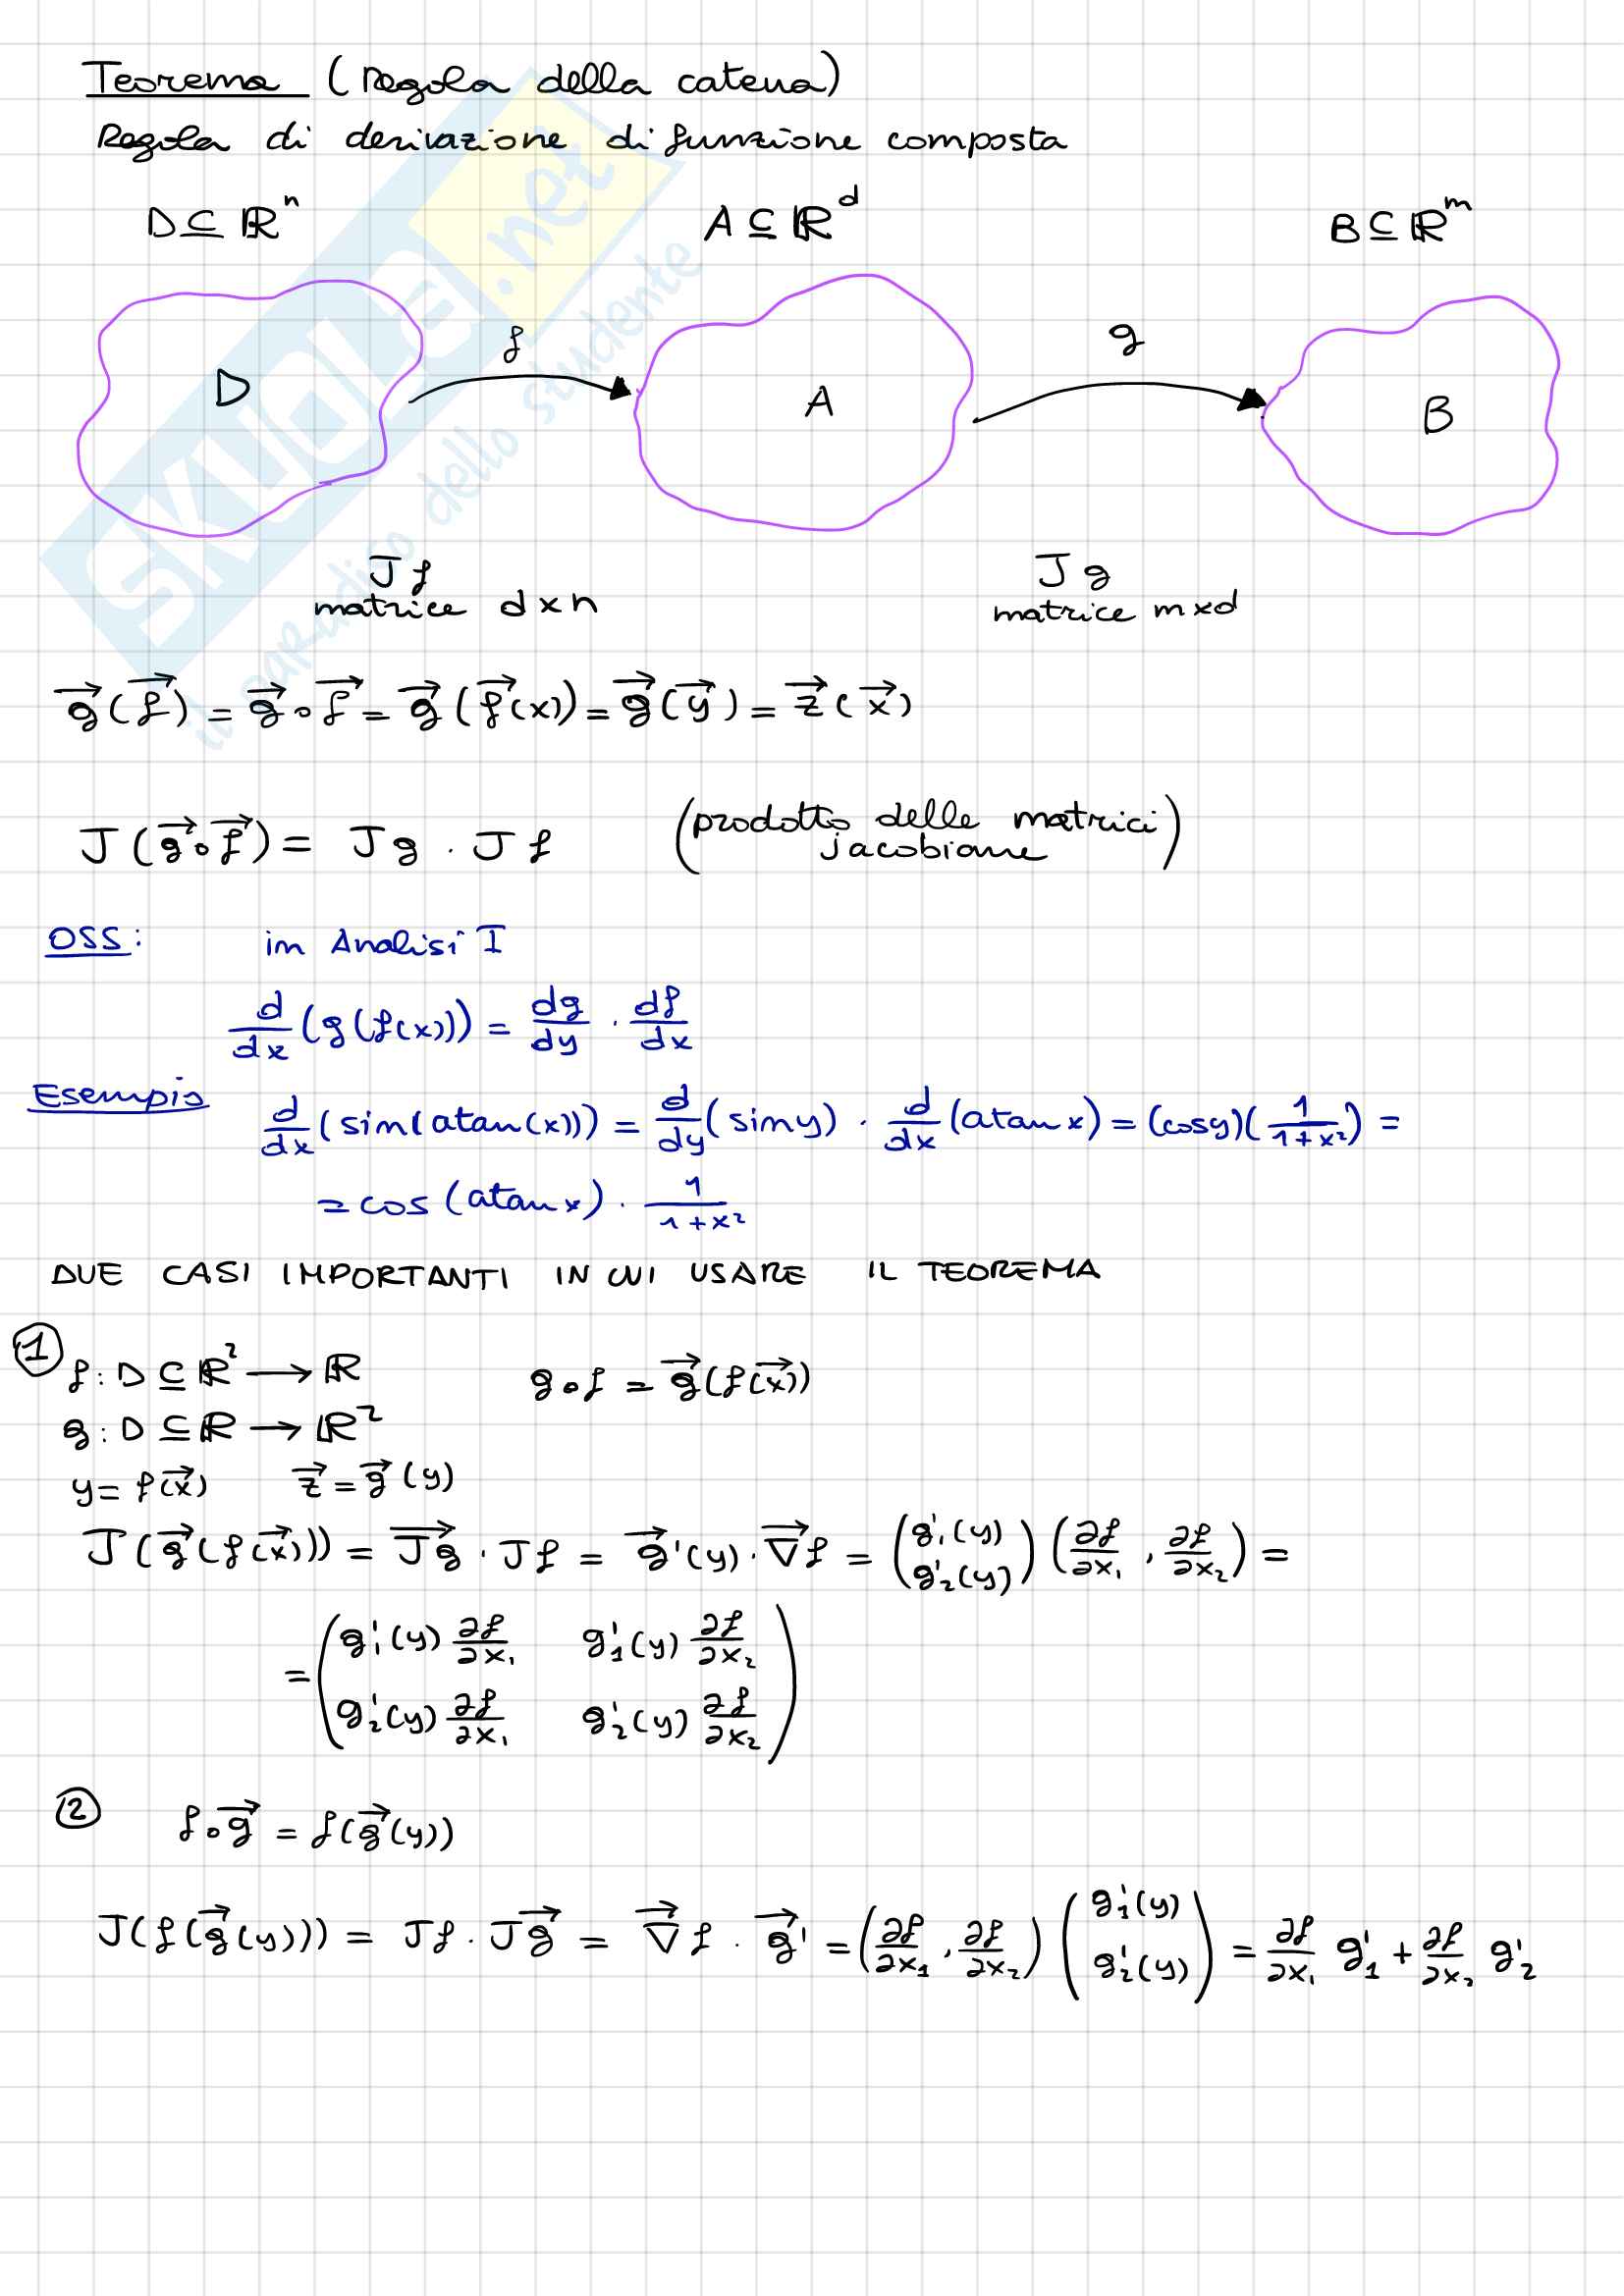 Teorema (Regola della catena)
Regola di derivazione di funzione composta
D ⊆ ℝⁿ A ⊆ ℝᵈ B ⊆ ℝᵐ
f g
D A B
Jf Jg
matrice d×n matrice m×d
g⃗(f⃗) = g⃗∘f⃗ = g⃗(f⃗(x)) = g⃗(y⃗) = z⃗(x⃗)
J(g⃗∘f⃗) = Jg · Jf (prodotto delle matrici jacobiane)
OSS: in Analisi I
d/dx (g(f(x))) = dg/dy · df/dx
Esempio d/dx (sin(atan(x))) = d/dy (sin y) · d/dx (atan x) = (cos y)(1/(1+x²)) =
= cos(atan x) · 1/(1+x²)
DUE CASI IMPORTANTI IN CUI USARE IL TEOREMA
① f: D ⊆ ℝ² → ℝ g∘f = g⃗(f(x⃗))
g: D ⊆ ℝ → ℝ²
y = f(x⃗) z⃗ = g⃗(y)
J(g⃗(f(x⃗))) = J⃗g · Jf = g⃗'(y) · ∇⃗f = (g'₁(y) g'₂(y)) (∂f/∂x₁, ∂f/∂x₂) =
= (g'₁(y) ∂f/∂x₁ g'₁(y) ∂f/∂x₂
g'₂(y) ∂f/∂x₁ g'₂(y) ∂f/∂x₂)
② f∘g⃗ = f(g⃗(y))
J(f(g⃗(y))) = Jf · Jg⃗ = ∇⃗f · g⃗' = (∂f/∂x₁, ∂f/∂x₂) (g'₁(y) g'₂(y)) = ∂f/∂x₁ g'₁ + ∂f/∂x₂ g'₂
SKUOLA.net
il paradiso dello studente